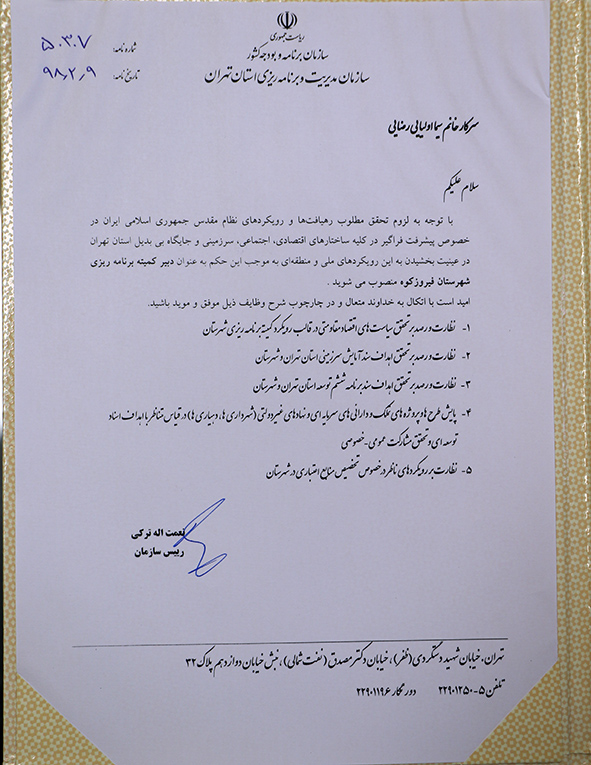 ریاست جمهوری
سازمان برنامه و بودجه کشور
سازمان مدیریت و برنامه ریزی استان تهران
شماره نامه: ۵۰۳۰۷
تاریخ نامه: ۹۸٫۲٫۹
سرکار خانم سیما اولیایی رضایی
سلام علیکم
با توجه به لزوم تحقق مطلوب رهیافت‌ها و رویکردهای نظام مقدس جمهوری اسلامی ایران در
خصوص پیشرفت فراگیر در کلیه ساختارهای اقتصادی، اجتماعی، سرزمینی و جایگاه بی بدیل استان تهران
در عینیت بخشیدن به این رویکردهای ملی و منطقه‌ای به موجب این حکم به عنوان دبیر کمیته برنامه ریزی
شهرستان فیروزکوه منصوب می شوید .
امید است با اتکال به خداوند متعال و در چارچوب شرح وظایف ذیل موفق و موید باشید.
۱- نظارت و رصد بر تحقق سیاست های اقتصاد مقاومتی در قالب رویکرد کمیته برنامه ریزی شهرستان
۲- نظارت و رصد بر تحقق اهداف سند آمایش سرزمینی استان تهران و شهرستان
۳- نظارت و رصد بر تحقق اهداف سند برنامه ششم توسعه استان تهران و شهرستان
۴- پایش طرح ها و پروژه های تملک و دارائی های سرمایه ای و نهادهای غیر دولتی (شهرداری ها، دهیاری ها) در قیاس متناظر با اهداف اسناد
توسعه ای و تحقق مشارکت عمومی-خصوصی
۵- نظارت بر رویکردهای ناظر در خصوص تخصیص منابع اعتباری در شهرستان
نعمت اله ترکی
رییس سازمان
تهران، خیابان شهید دستگردی (ظفر)، خیابان دکتر مصدق (نفت شمالی)، نبش خیابان دوازدهم پلاک ۳۲
تلفن ۵-۲۲۹۰۱۲۵۰ دورنگار ۲۲۹۰۱۱۹۶